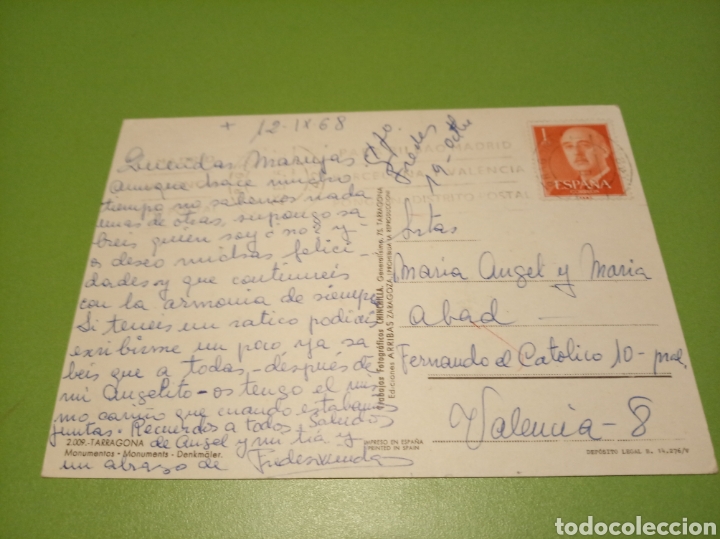 + 12-IX68
Queridas Marujas
aunque hace mucho
tiempo no sabemos nada
unas de otras, supongo sa
breis quien soy ¿no? y
os deseo muchas felici-
dades y que continueis
con la armonia de siempre
Si teneis un ratico podiais
escribirme un poco ya sa
beis que a todas, - después de
mi Angelito - os tengo el mis
mo cariño que cuando estabamos
juntas. Recuerdos a todos Saludos
de Angel y mi tía y
un abrazo de Fredesvinda
Sto.
Fredes
19-octu
2.009.-TARRAGONA
Monumentos - Monuments - Denkmäler.
Trabajos Fotográficos CHINCHILLA. Generalísimo, 73, TARRAGONA
Ediciones ARRIBAS ZARAGOZA, PROHIBIDA LA REPRODUCCION
IMPRESO EN ESPAÑA
PRINTED IN SPAIN
MADRID
VALENCIA
DISTRITO POSTAL
1
ESPAÑA
Srtas
Maria Angel y Maria
Abad
Fernando el Catolico 10-pral
Valencia-8
DEPÓSITO LEGAL B. 14.236/V
todocoleccion